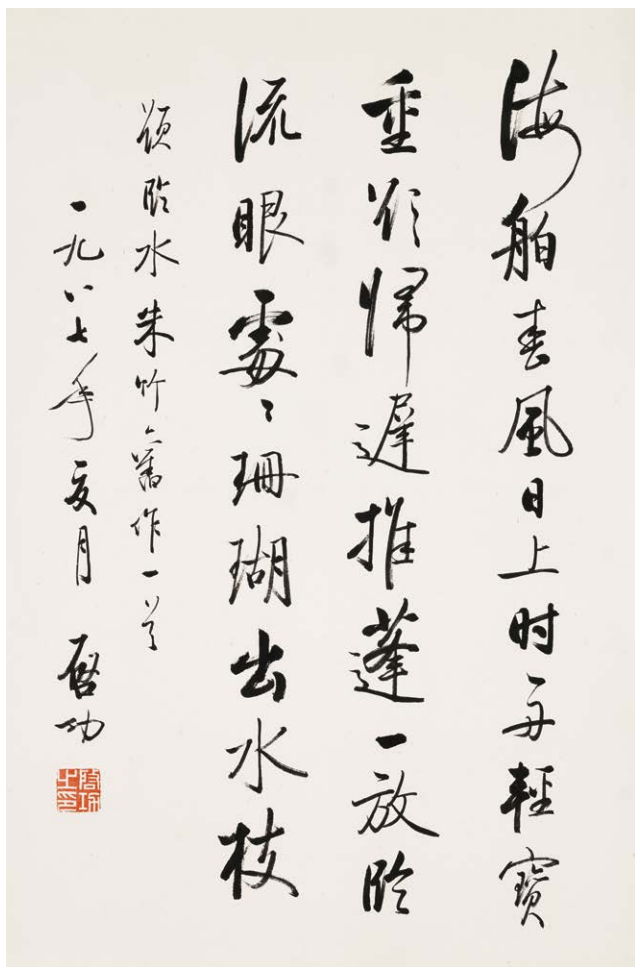 海舶春風日上时舟輕寶
重欲歸遲推蓬一放临
流眼處〻珊瑚出水枝
题临水朱竹之舊作一首
一九八七年夏月 啓功
啓功之印